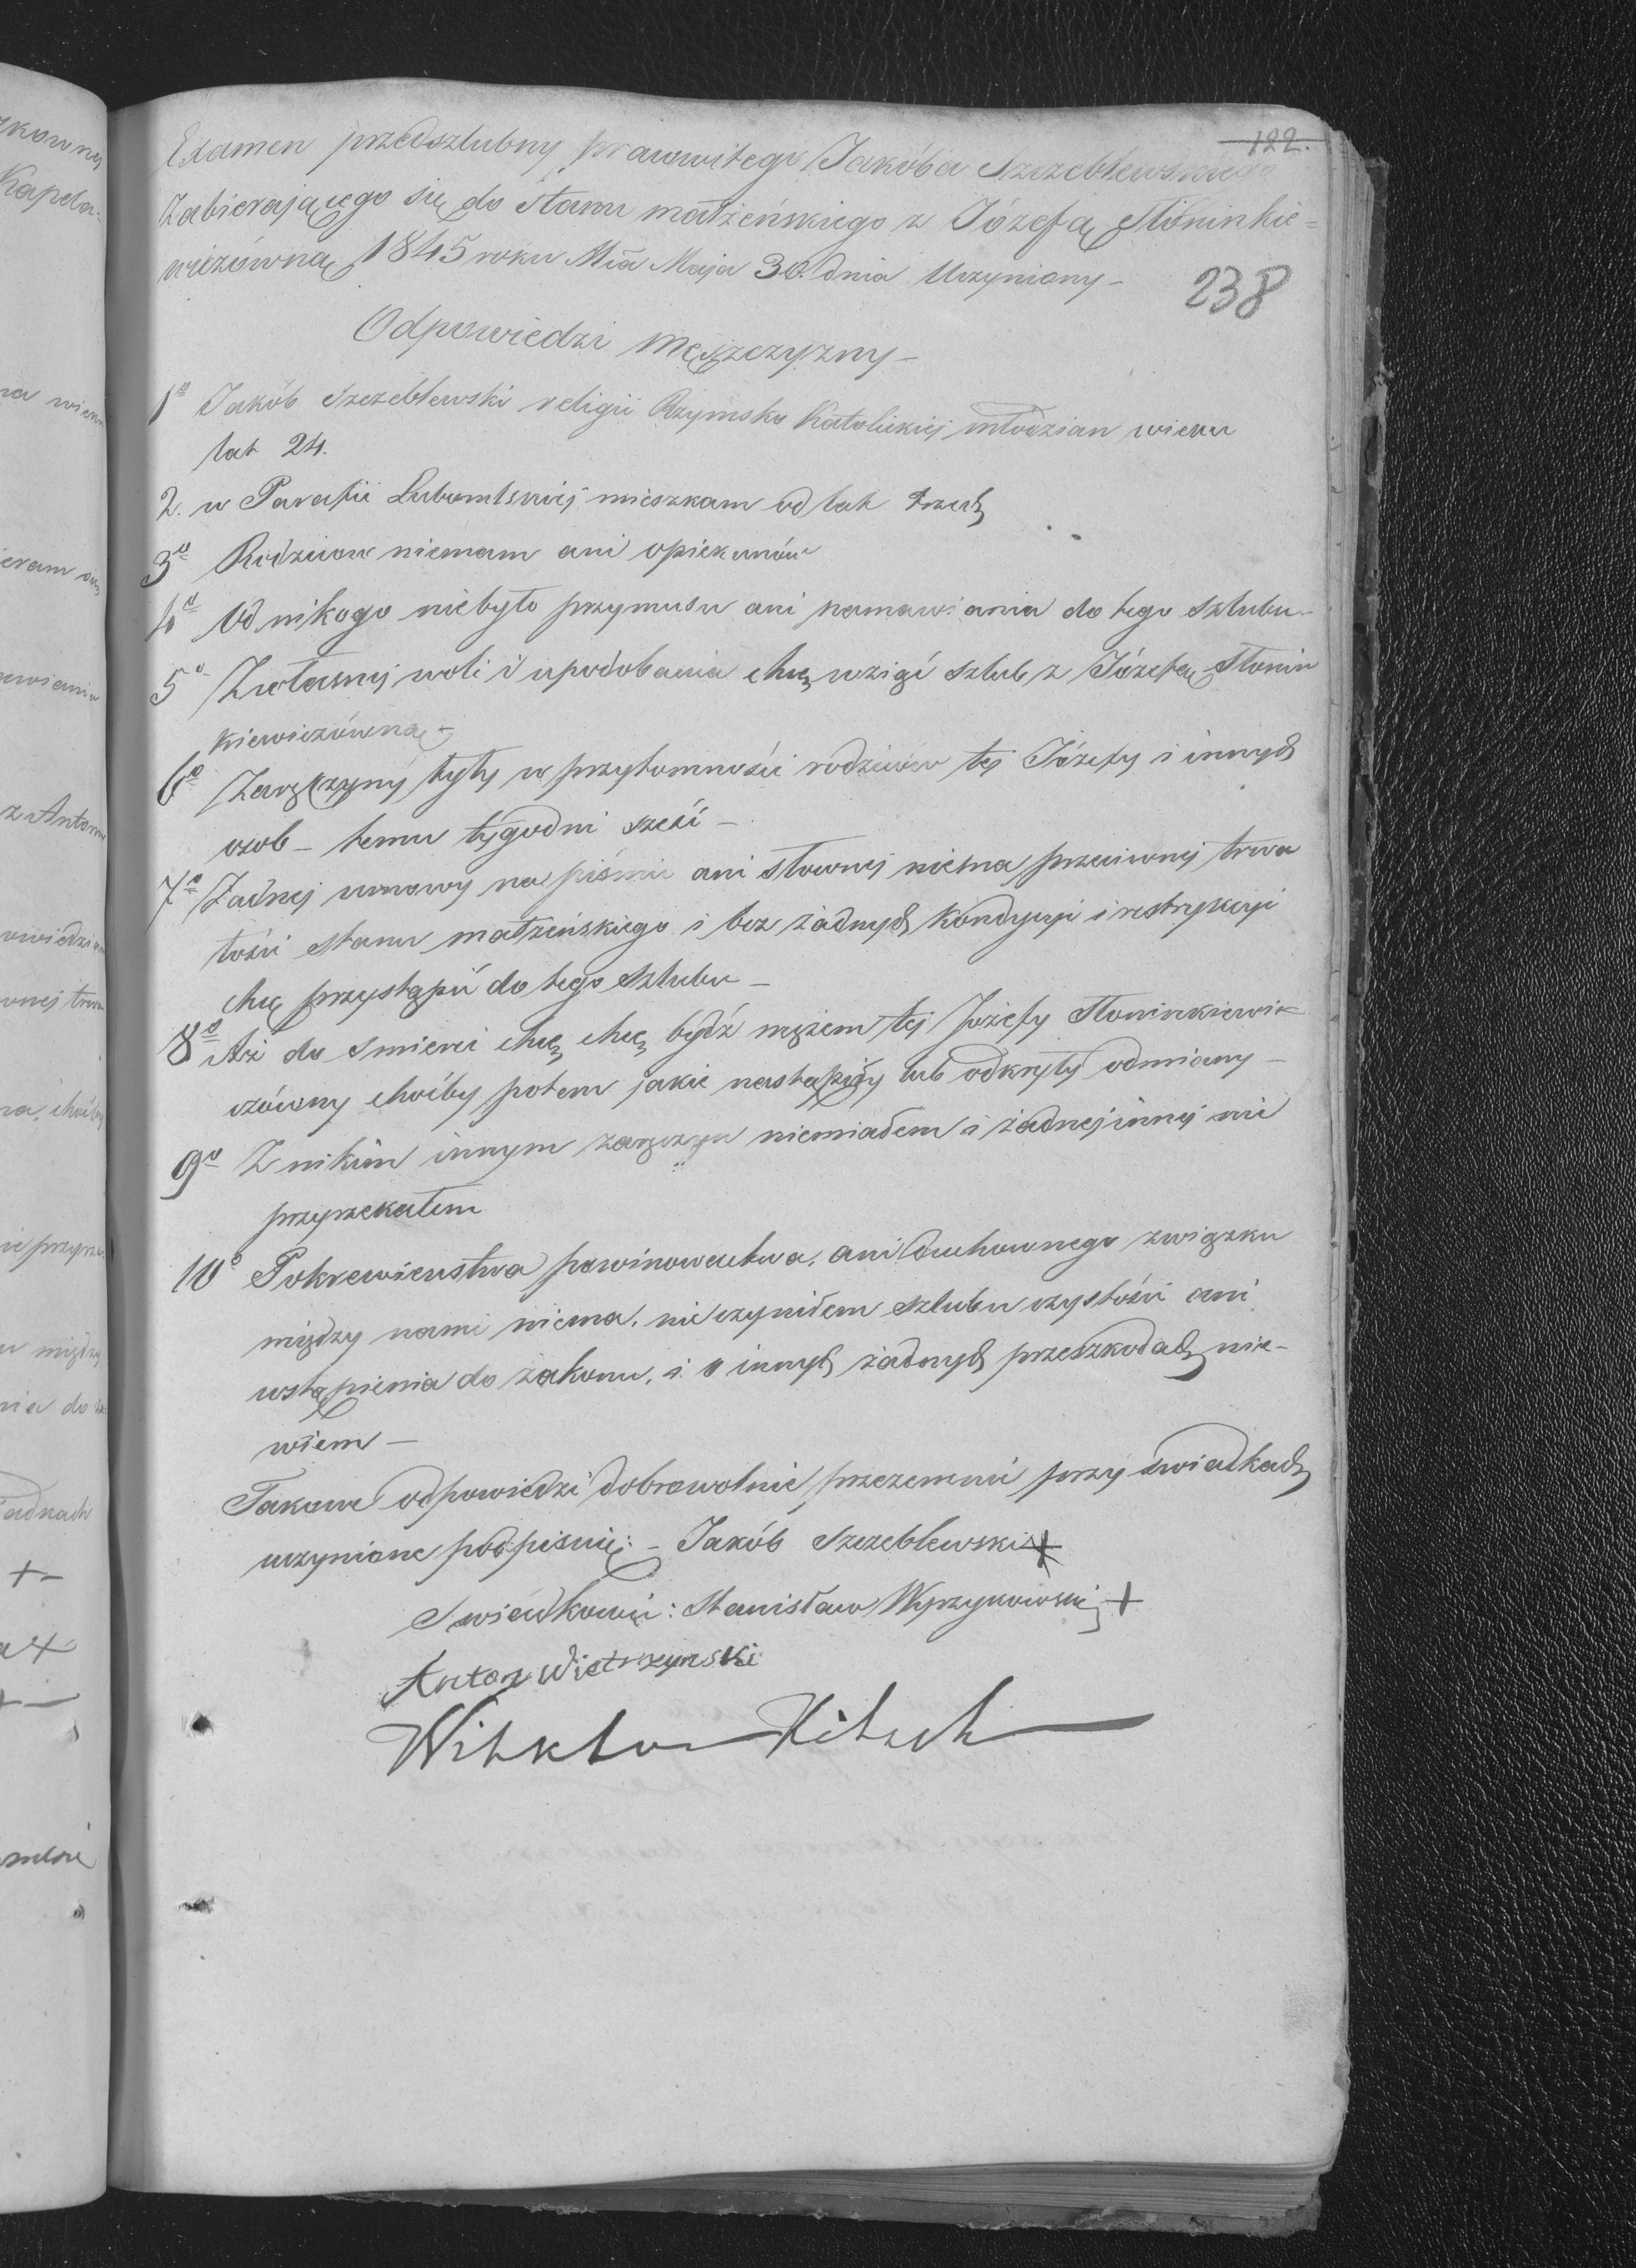 122.
Examen przedszlubny prawowitego Jakóba Szczeblewskiego
Zabierającego się do stanu małżeńskiego z Józefą Słoninkie=
wiczówną 1845 roku Mca Maja 30. dnia Uczyniony –
238
Odpowiedzi mężczyzny –
1o Jakób Szczeblewski religii Rzymsko Katolickiej młodzian wieku
lat 24.
2. w Parafii Lubomlskiej mieszkam od lat trzech
3o Rodziców niemam ani opiekunów
4o Od nikogo niebyło przymusu ani namawiania do tego szlubu –
5o Z własnej woli i upodobania chcę wziąć szlub z Józefą Słonin
kiewiczówną –
6o Zaręczyny były w przytomności rodziców tej Józefy i innych
osob – temu tygodni sześć –
7o Żadnej umowy na piśmie ani słownej niema przeciwnej trwa
łości stanu małżeńskiego i bez żadnych kondycyi i restrykcyi
chcę przystąpić do tego szlubu –
8o Aż do smierci chcę chcę bydź mężem tej Józefy Słoninkiewi=
czówny choćby potem jakie nastąpiły lub odkryły odmiany –
9o Z nikim innym zaręczyn niemiałem i żadnej innej nie
przyrzekałem
10o Pokrewieństwa powinowactwa, ani duchownego związku
między nami niema, nie czyniłem szlubu czystości ani
wstąpienia do zakonu, i o innych żadnych przeszkodach nie-
wiem –
Takowe odpowiedzi dobrowolnie przezemnie przy świadkach
uczynione podpisuię: – Jakób Szczeblewski +
Swiadkowie: Stanisław Wyrzykowski +
Anton Wietrzynski